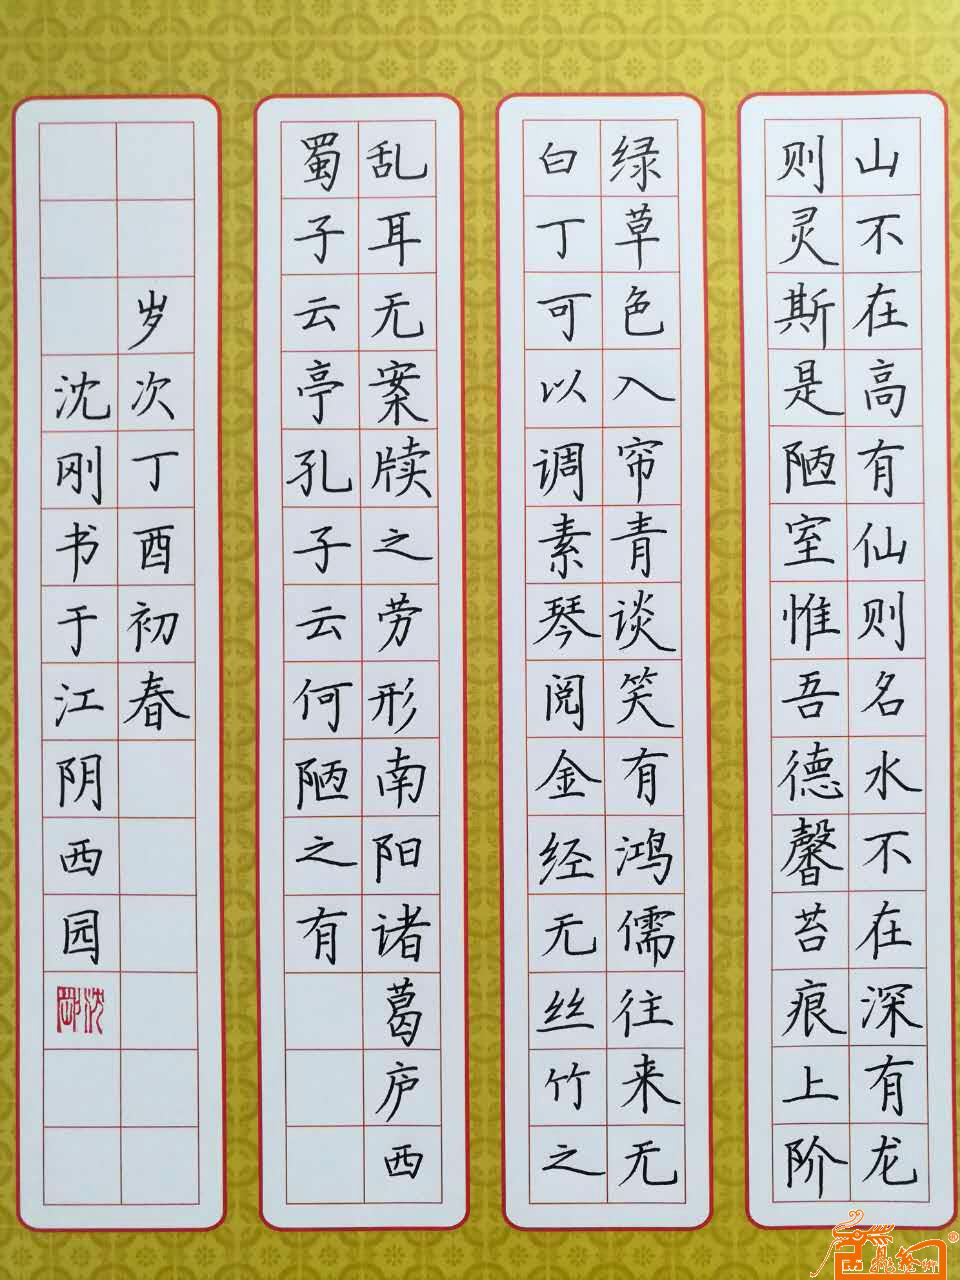 山不在高有仙则名水不在深有龙
则灵斯是陋室惟吾德馨苔痕上阶
绿草色入帘青谈笑有鸿儒往来无
白丁可以调素琴阅金经无丝竹之
乱耳无案牍之劳形南阳诸葛庐西
蜀子云亭孔子云何陋之有
岁次丁酉初春
沈刚书于江阴西园
沈刚